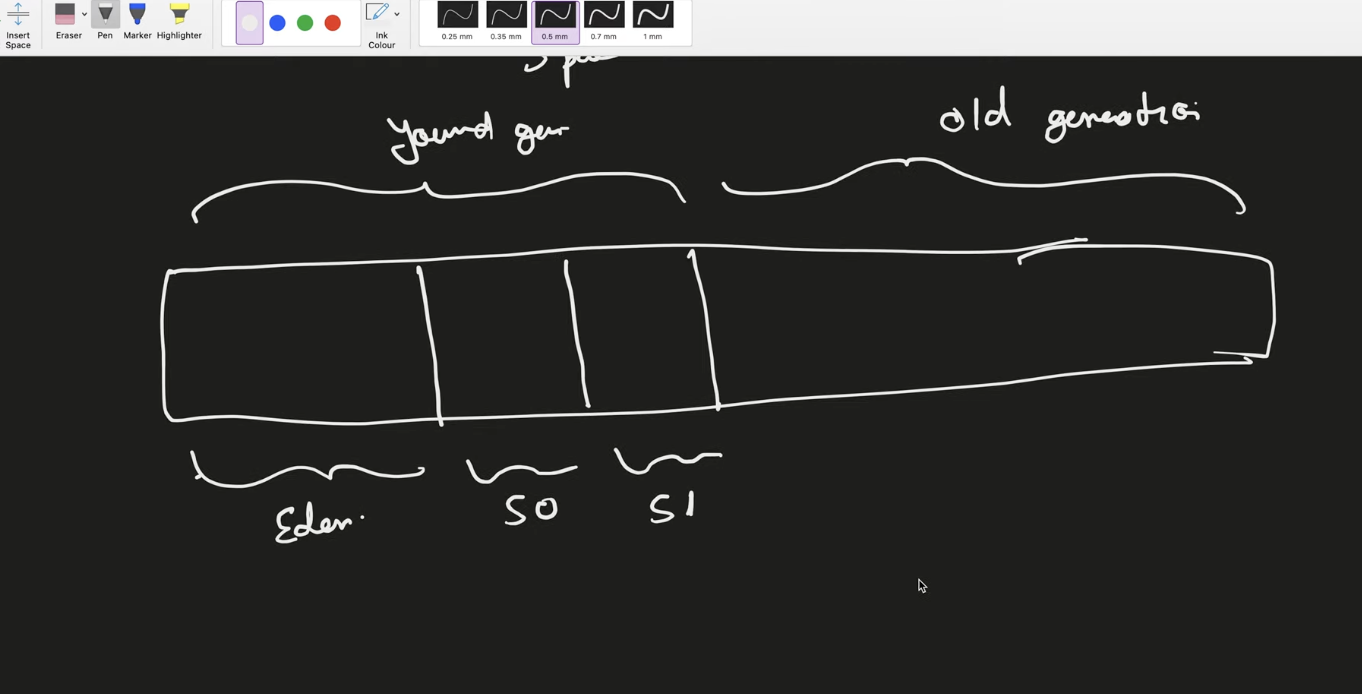 Insert Space
Eraser
Pen
Marker
Highlighter
Ink Colour
0.25 mm
0.35 mm
0.5 mm
0.7 mm
1 mm
yound gen
old generatioi
Eden.
S0
S1